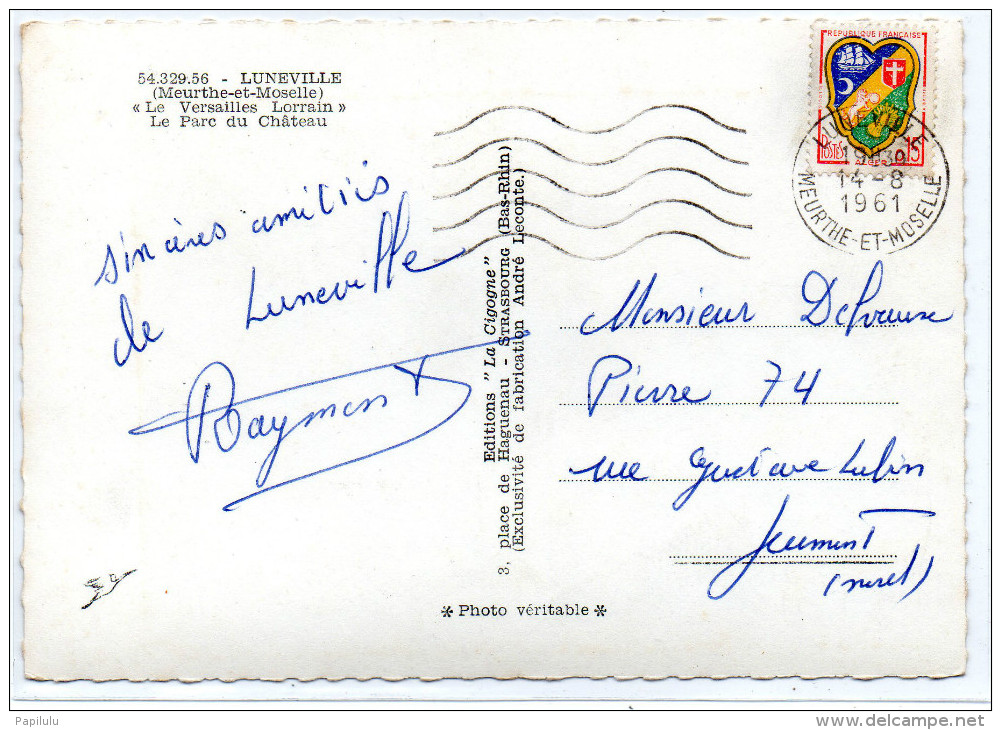 54.329.56 - LUNEVILLE
(Meurthe-et-Moselle)
« Le Versailles Lorrain »
Le Parc du Château
sincères amitiés
de Luneville
Raymond
Editions "La Cigogne"
3, place de Haguenau - STRASBOURG (Bas-Rhin)
(Exclusivité de fabrication André Leconte.)
✻ Photo véritable ✻
REPUBLIQUE FRANÇAISE
POSTES
15
LUNEVILLE
19H30
14-8
1961
MEURTHE-ET-MOSELLE
Monsieur
Pierre 74
rue Gustave Lubin
Jeumont
(nord)
Papilulu
www.delcampe.net